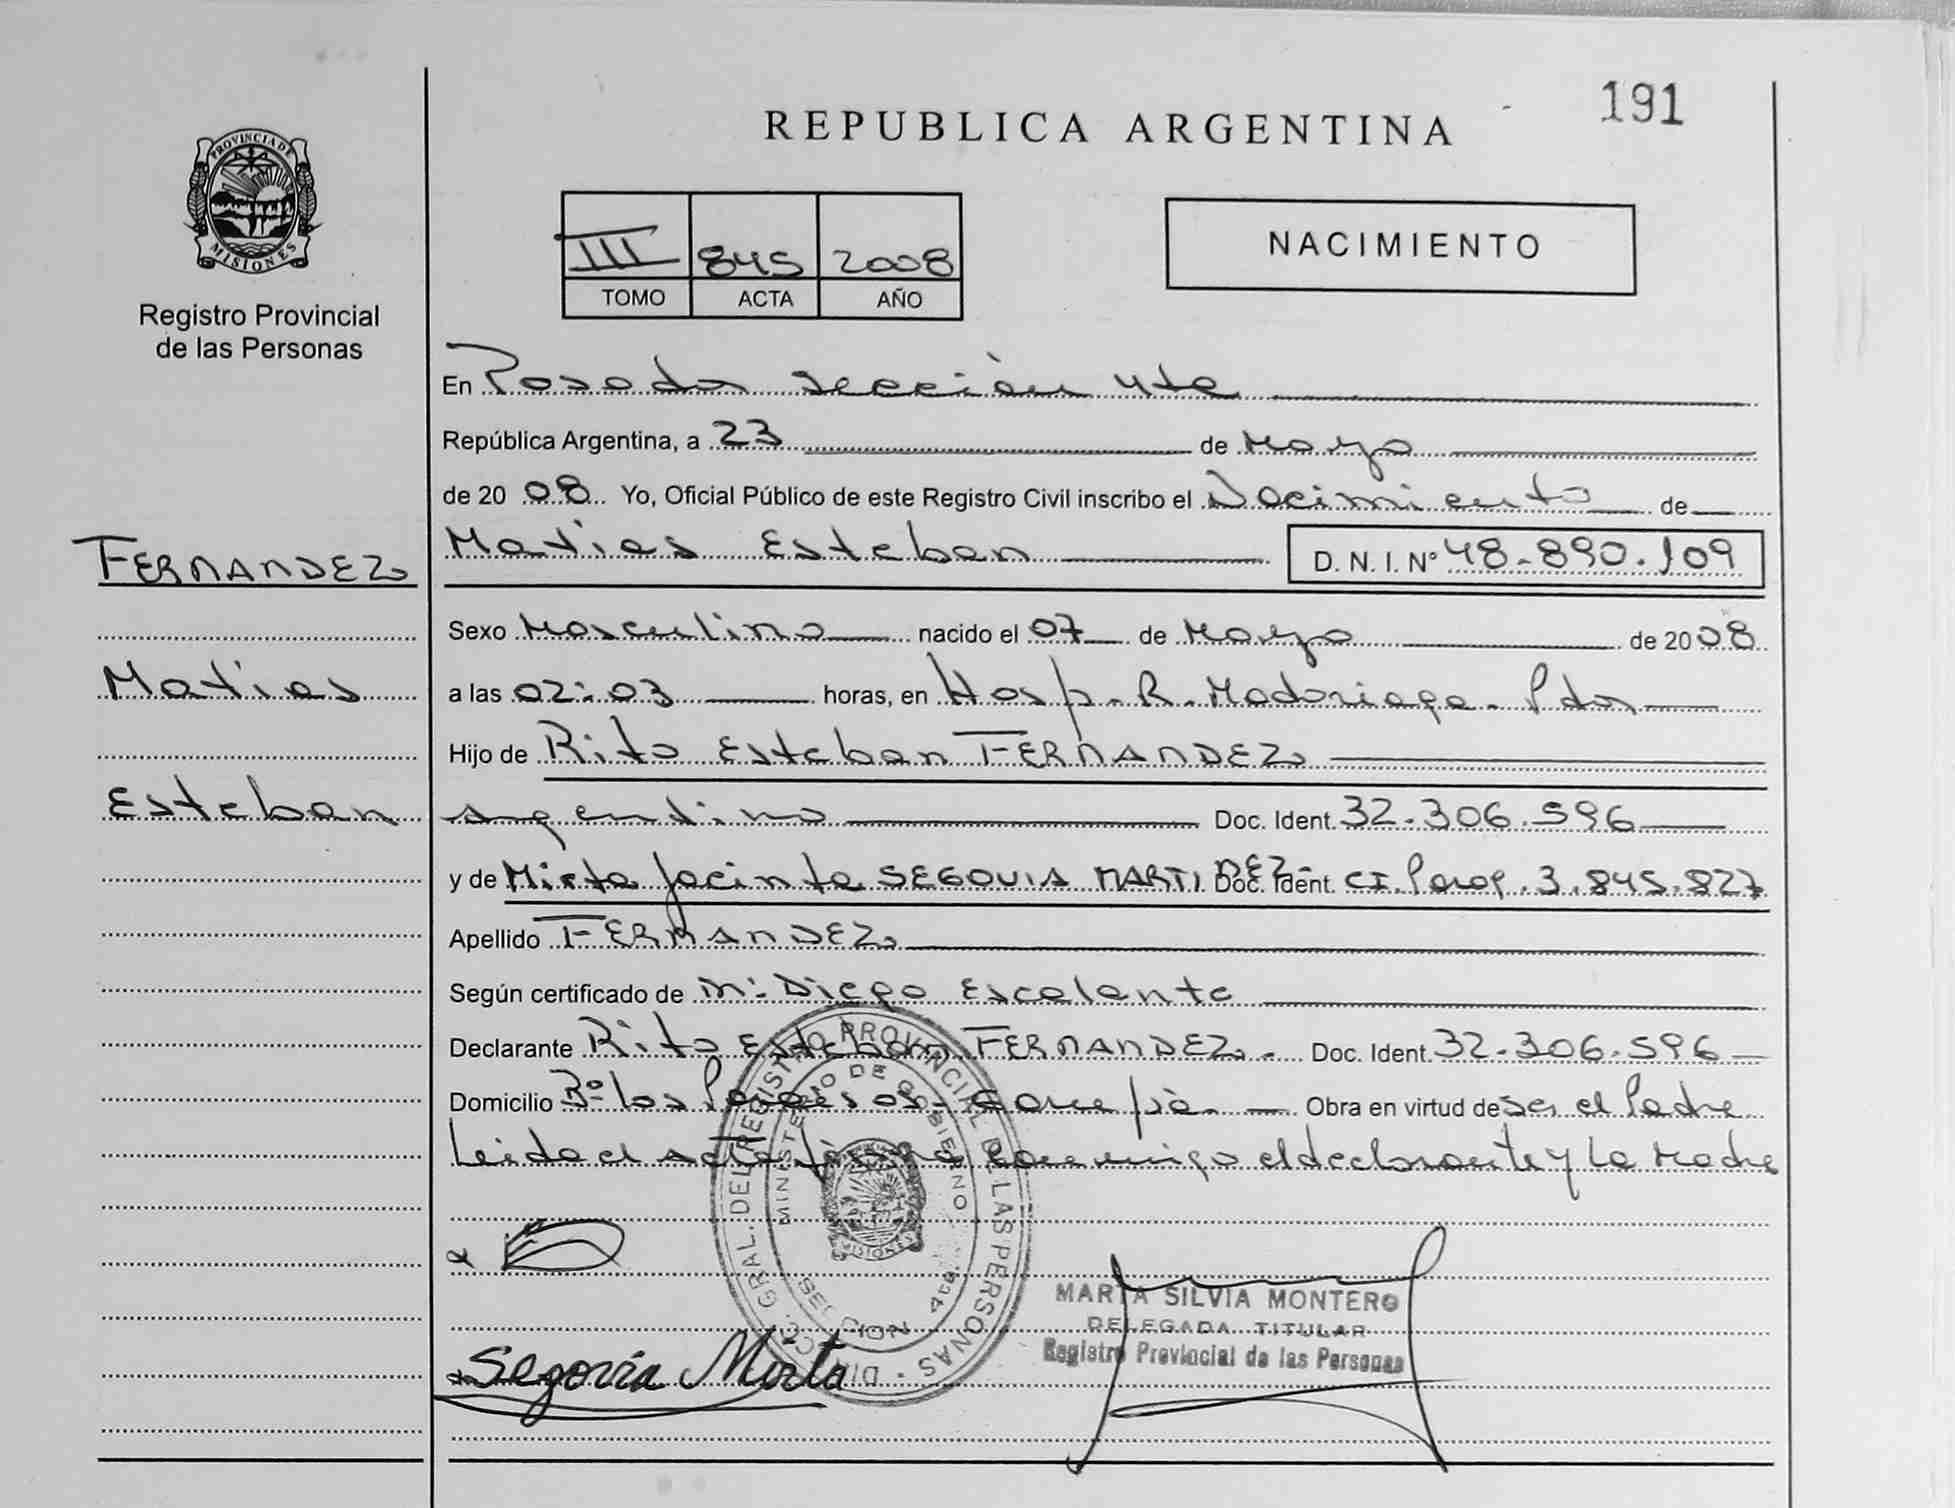 191
REPUBLICA ARGENTINA
PROVINCIA DE
MISIONES
Registro Provincial
de las Personas
III 845 2008
TOMO ACTA AÑO
NACIMIENTO
En Posadas sección 4ta
República Argentina, a 23 de Mayo
de 2008 Yo, Oficial Público de este Registro Civil inscribo el Nacimiento de
FERNANDEZ
Matias Esteban D. N. I. Nº 48.890.109
Sexo Masculino nacido el 07 de Mayo de 2008
Matias
a las 02:03 horas, en Hosp. R. Madariaga - Pdas
Hijo de Rito Esteban FERNANDEZ
Esteban
argentino Doc. Ident. 32.306.596
y de Mirta Jacinta SEGOVIA MARTINEZ Doc. Ident. CI. Parag. 3.845.827
Apellido FERNANDEZ
Según certificado de Mº Diego Escalante
Declarante Rito Esteban FERNANDEZ.- Doc. Ident. 32.306.596
Domicilio Bº los Paraisos - Garupá Obra en virtud de ser el Padre
Leida el acta firma conmigo el declarante y la Madre
DIRECC. GRAL. DEL REGISTRO PROVINCIAL DE LAS PERSONAS
MINISTERIO DE GOBIERNO
MISIONES
SECCION 4ta.
MARTA SILVIA MONTERO
DELEGADA TITULAR
Registro Provincial de las Personas
Segovia Mirta